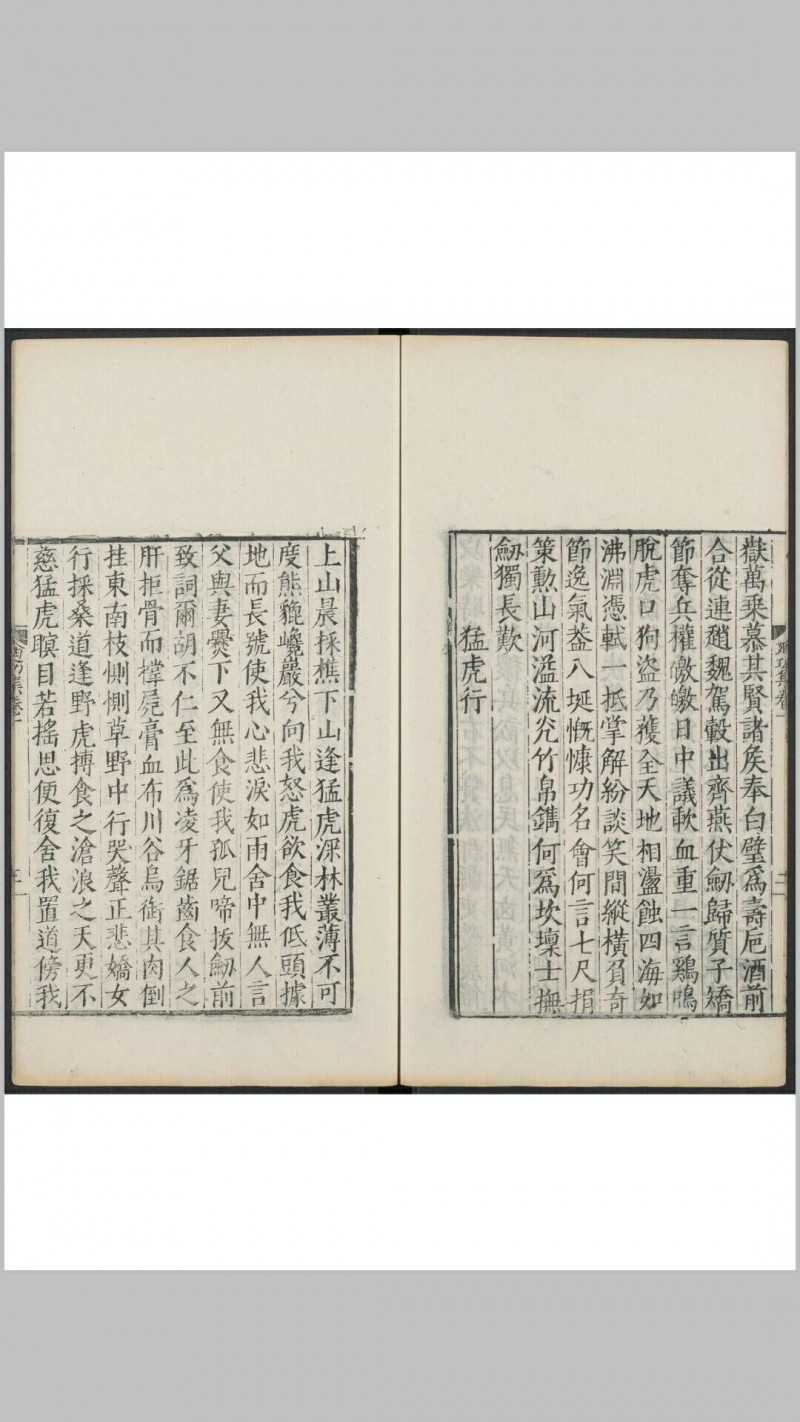 嶽萬乗慕其賢諸矦奉白璧爲壽巵酒前
合從連趙魏駕轂出齊燕伏劒歸質子矯
節奪兵權皦皦日中議歃血重一言鷄鳴
脫虎口狗盜乃獲全天地相盪蝕四海如
沸淵憑軾一抵掌解紛談笑間縱橫負奇
節逸氣葢八埏慨慷功名會何言七尺捐
策勲山河溢流竹帛鐫何爲坎壈士撫
劒獨長歎
猛虎行
上山晨採樵下山逢猛虎深林叢薄不可
度熊貔巉巖兮向我怒虎欲食我低頭據
地而長號使我心悲淚如雨舍中無人言
父與妻爨下又無食使我孤兒啼拔劒前
致詞爾胡不仁至此爲凌牙鋸齒食人之
肝拒骨而撐屍膏血布川谷烏銜其肉倒
挂東南枝惻惻草野中行哭聲正悲嬌女
行採桑道逢野虎搏食之滄浪之天更不
慈猛虎瞑目若搖思便復舍我置道傍我